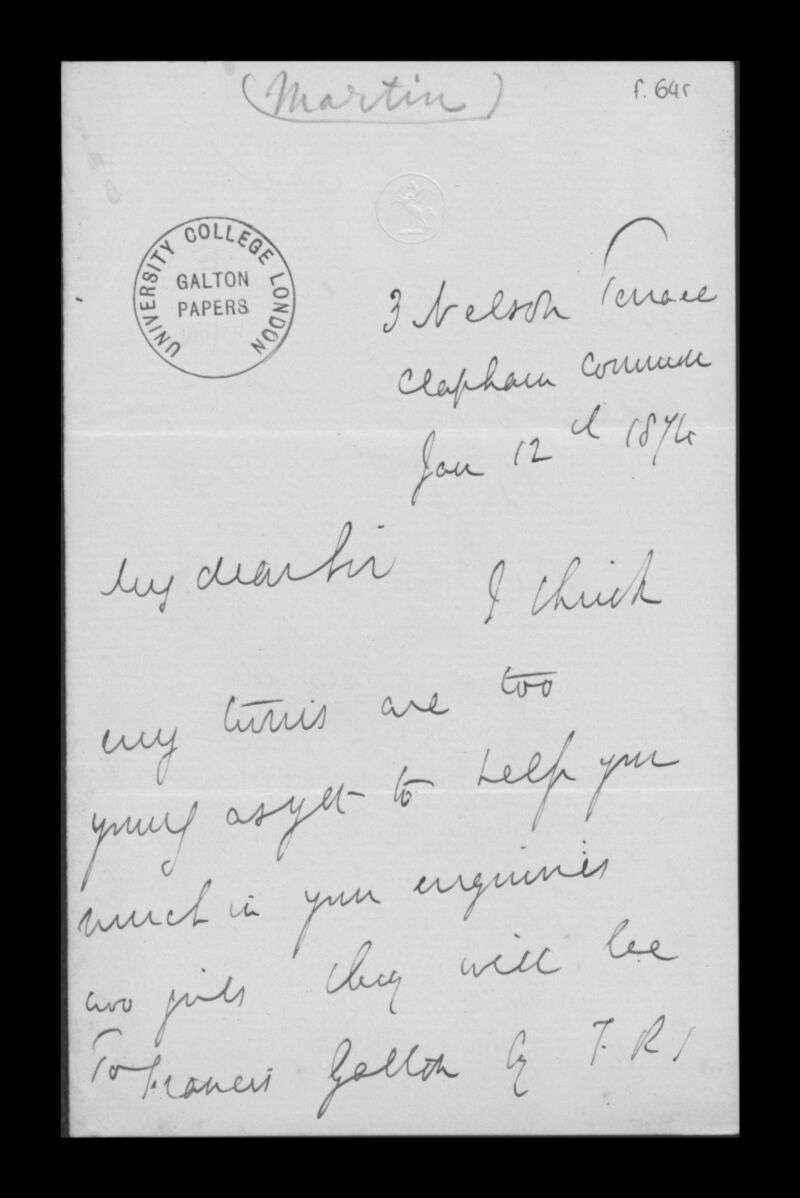 (Martin)
f. 64r
UNIVERSITY COLLEGE LONDON
GALTON
PAPERS
3 Nelson Terrace
Clapham Common
Jan 12
My dear Sir
I think
my twins are too
young as yet to help you
much in your enquiries
two girls they will be
To Francis Galton Esq F.R.S